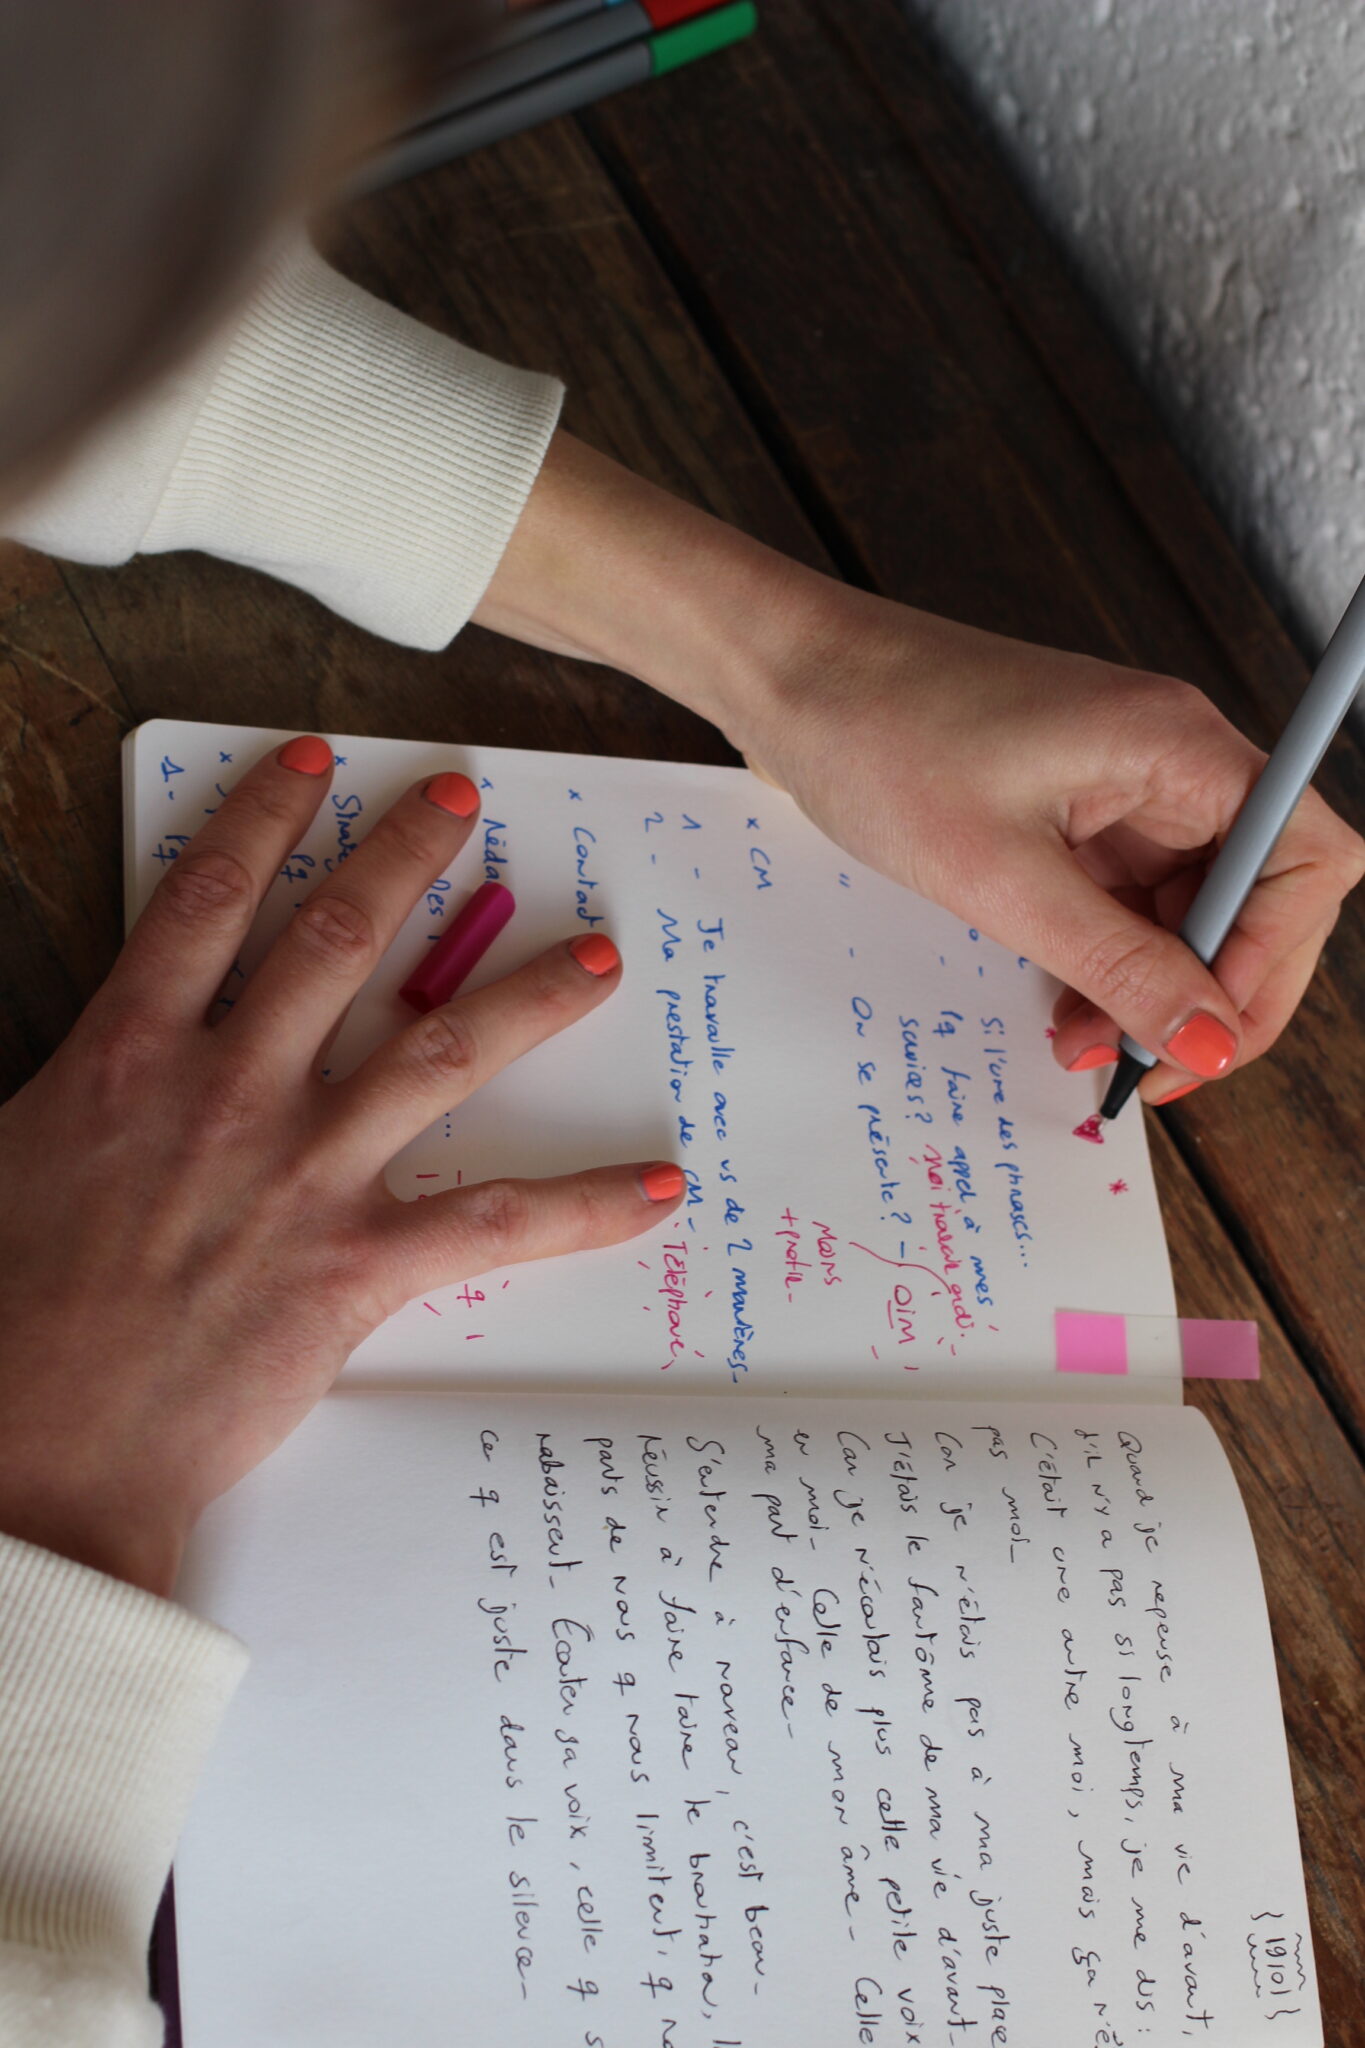 Si l'une des phrases...
- Pq faire appel à mes
services? Moi travail
- On se présente? - OIM
Moins
+ profil -
x CM
1 - Je travaille avec vs de 2 manières -
2 - Ma prestation de CM - Téléphone
x Contact
x Réda
x Strat
des
Pq
1 - Pq
{ 19101 }
Quand je repense à ma vie d'avant,
d'il n'y a pas si longtemps, je me dis :
C'était une autre moi, mais ça n'é
pas moi -
Car je n'étais pas à ma juste place
J'étais le fantôme de ma vie d'avant -
Car je n'écoutais plus cette petite voix
en moi - Celle de mon âme - Celle
ma part d'enfance -
S'entendre à nouveau, c'est beau -
Réussir à faire taire le brouhaha, l
parts de nous q nous limitent, q no
rabaissent - Écouter sa voix, celle q s
ce q est juste dans le silence -